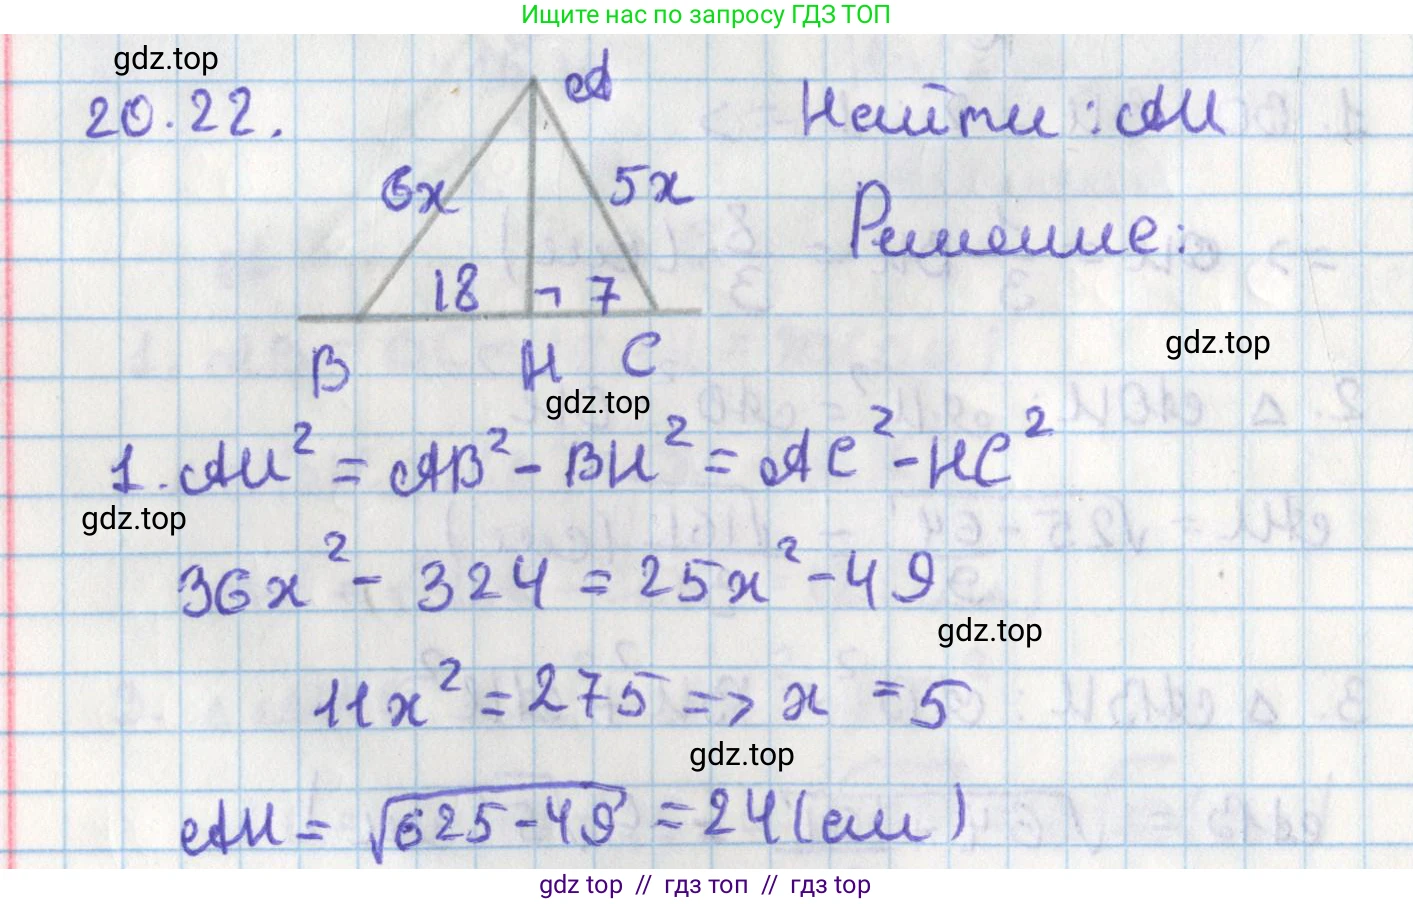 Ищите нас по запросу ГДЗ ТОП
gdz.top
20.22.
A
Найти: AH
6x
5x
Решение:
18
7
gdz.top
B
H
C
gdz.top
1. AH² = AB² - BH² = AC² - HC²
gdz.top
36x² - 324 = 25x² - 49
gdz.top
11x² = 275 => x = 5
gdz.top
AH = √625-49 = 24 (см)
gdz top // гдз топ // гдз top